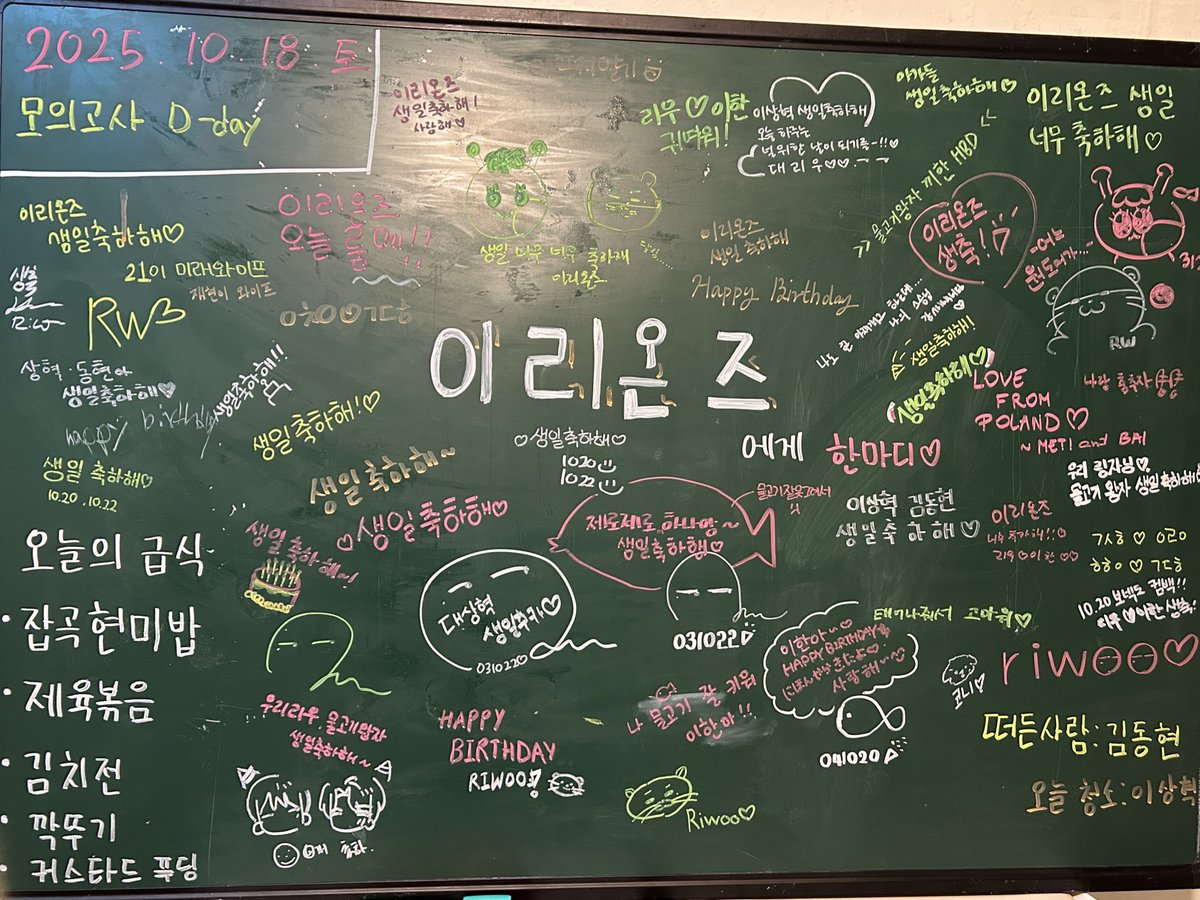 2025. 10. 18 토
모의고사 D-day
이리온즈
생일축하해!
사랑해♡
리우♡이한
귀여워!
이상혁 생일축하해
오늘 하루는
널위한 날이 되기를~!!♡
대 리 우♡♡
아가들
생일축하해♡
이리온즈 생일
너무 축하해♡
>> 물고기왕자 끼한 HBD <<
이리온즈
생축!
이리온즈
생일축하해♡
이리온즈
오늘
생일 너무 너무 축하해
이리온즈
이리온즈
생일 축하해
Happy Birthday
생축
Riw
21이 미래와이프
재현이 와이프
RW
RW
이리온즈
생일축하해!
생일축하해♡
상혁·동현아
생일축하해♡
Happy birthday
생일축하해!!
생일축하해!♡
♡생일축하해♡
10.20
10.22
에게 한마디♡
LOVE
FROM
POLAND♡
~ METI and BAI
우리 왕자님♡
물고기 왕자 생일축하해
생일 축하해♡
10.20 10.22
생일축하해~
♡생일축하해♡
생일축하해~!
제로제로 하나양~
생일축하해♡
이상혁 김동현
생일축하해♡
이리온즈
너무 축하해!!♡
리우♡이한♡♡
ㄱㅅㅎ♡ㅇㄹㅇ
ㅎㅎㅇ♡ㄱㄷㅎ
오늘의 급식
· 잡곡현미밥
· 제육볶음
· 김치전
· 깍뚜기
· 커스타드 푸딩
대상혁
생일추카♡
031022♡
031022
10.20 보넥도 컴백!!
리우♡이한 생축
태어나줘서 고마워♡
이한아~♡
HAPPY BIRTHDAY
사랑해~♡
041020
코니♡
riwoo♡
우리리우 물고기왕자
생일축하해~
HAPPY
BIRTHDAY
RIWOO!
나 물고기 잘 키워
이한아!!
Riwoo♡
떠든사람: 김동현
오늘 청소: 이상혁